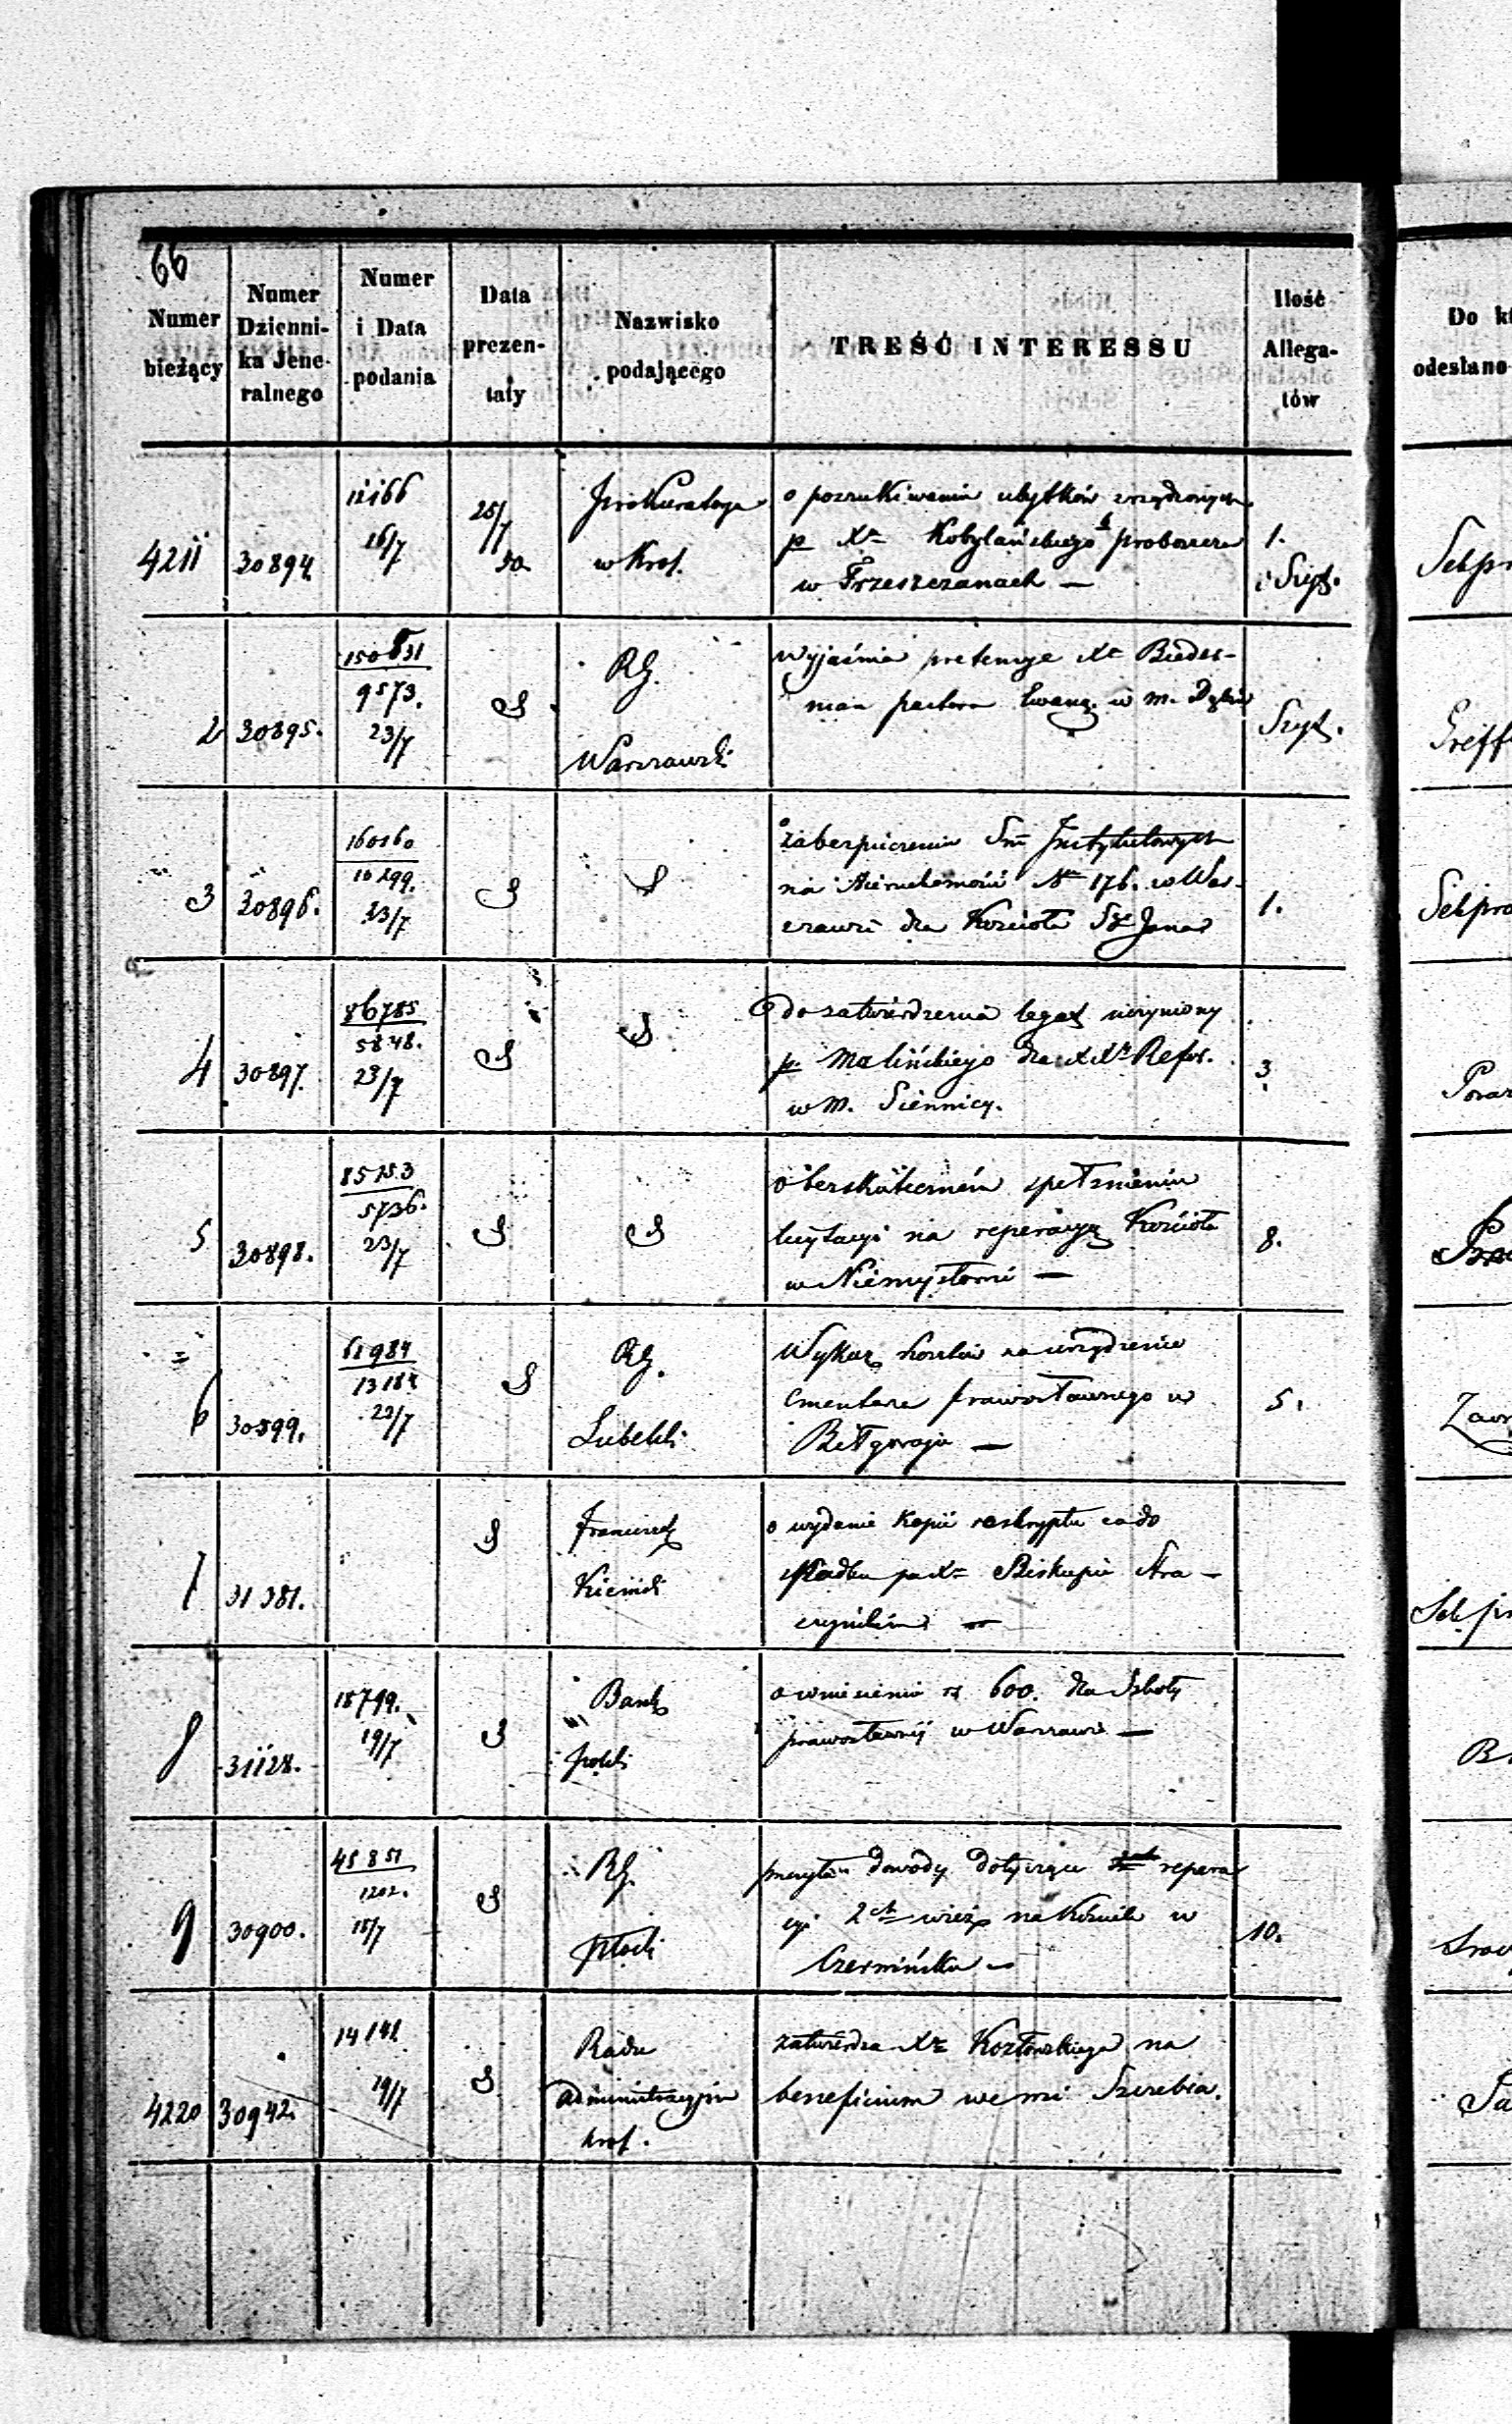 66
Numer bieżący
Numer Dzienni-ka Jene-ralnego
Numer i Data podania
Data prezen-taty
Nazwisko podającego
TREŚĆ INTERESSU
Ilość Allega-tów
Do
odesłano
4211 30894.
12166
16/7
25/7
50.
Prokuratorya
w Krol.
o poszukiwaniu ubytków zrządzonych
p Xa Kobylańskiego proboszcza
w Trzeszczanach —
1.
2 30895.
9573.
23/7
RG.
Warszawski
wyjaśnia pretensye Xa Bieder-
man pastora Ewang. w m.
3 30896.
160160
10299.
23/7
o
zabezpieczeniu Sm Instytutowych
na Nieruchomości No 176. w War-
szawie dla Kościoła Sgo Jana
1.
4 30897.
86785
5848.
23/7
do zatwierdzenia legat uczyniony
p. Malińskiego dla XX Refor.
w m. Siennicy.
3
5 30898.
5736.
23/7
o bezskuteczném spełznieniu
licytacyi na reperacyą Kościoła
w Niemysłowie —
8.
6
61984
23/7
RG.
Lubelski
Wykaz kosztów na urządzenie
Cmentarza prawosławnego w
Biłgoraju —
5.
7 31381.
Franciszek
o wydanie Kopii reskryptu co do
spadku po Xa Biskupie Stra-
—
8 31128.
18799.
19/7
Bank
Polski
o wniesienie rs 600. dla Szkoły
prawosławnéj w Warszawie —
9 30900.
45851
1202.
15/7
RG.
Płocki
dowody dotyczące repera
cyi 2ch wież na Kościele w
Czerwińsku —
10.
4220 30942.
19/7
Rada
Administracyjna
Król.
zatwierdza Xa Kozłowskiego na
beneficium we wsi Szczebra.